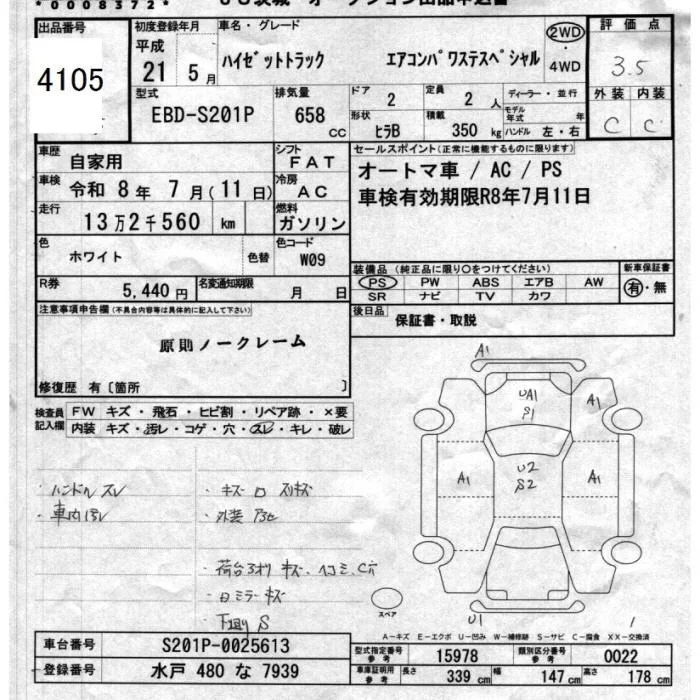 *0008372*
出品番号
4105
初度登録年月
平成
21年 5月
車名・グレード
ハイゼットトラック エアコンパワステスペシャル
2WD
・
4WD
評価点
3.5
外装 内装
C C
型式
EBD-S201P
排気量
658 cc
ドア
2
定員
2 人
形状
ヒラB
積載
350 kg
ディーラー・並行
モデル年式 年
ハンドル 左・右
車歴
自家用
シフト
FAT
車検
令和 8年 7月(11日)
冷房
AC
走行
13万2千560 km
燃料
ガソリン
色
ホワイト
色替
色コード
W09
R券
5,440円
名変通知期限
月 日
セールスポイント(正常に機能するものに限ります)
オートマ車 / AC / PS
車検有効期限R8年7月11日
装備品(純正品に限り○をつけてください)
PS PW ABS エアB AW
SR ナビ TV カワ
新車保証書
有・無
後日品
保証書・取説
注意事項申告欄(不具合内容等は具体的に記入して下さい)
原則ノークレーム
修復歴 有〔箇所 〕
検査員
記入欄
FW キズ・飛石・ヒビ割・リペア跡・×要
内装 キズ・汚レ・コゲ・穴・スレ・キレ・破レ
・ハンドルスレ
・車内汚レ
・キズ
・外装
・荷台 キズ、ヘコミ、
・ロミラーキズ
・下回りS
A1
UA1
S1
A1
A1
U2
S2
A1
U1
スペア
A-キズ E-エクボ U-凹み W-補修跡 S-サビ C-腐食 XX-交換済
車台番号
S201P-0025613
登録番号
水戸 480 な 7939
型式指定番号
参考
15978
類別区分番号
参考
0022
車庫証明用
参考
長さ 339 cm 幅 147 cm 高さ 178 cm